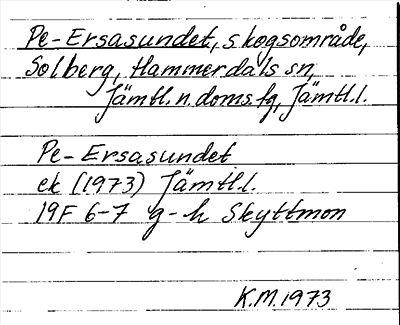 Pe-Ersasundet, skogsområde,
Solberg, Hammerdals sn,
Jämtl. n. doms fg, Jämtl. l.
Pe-Ersasundet
ek (1973) Jämtl. l.
19F 6-7 g-h Skyttmon
K.M. 1973